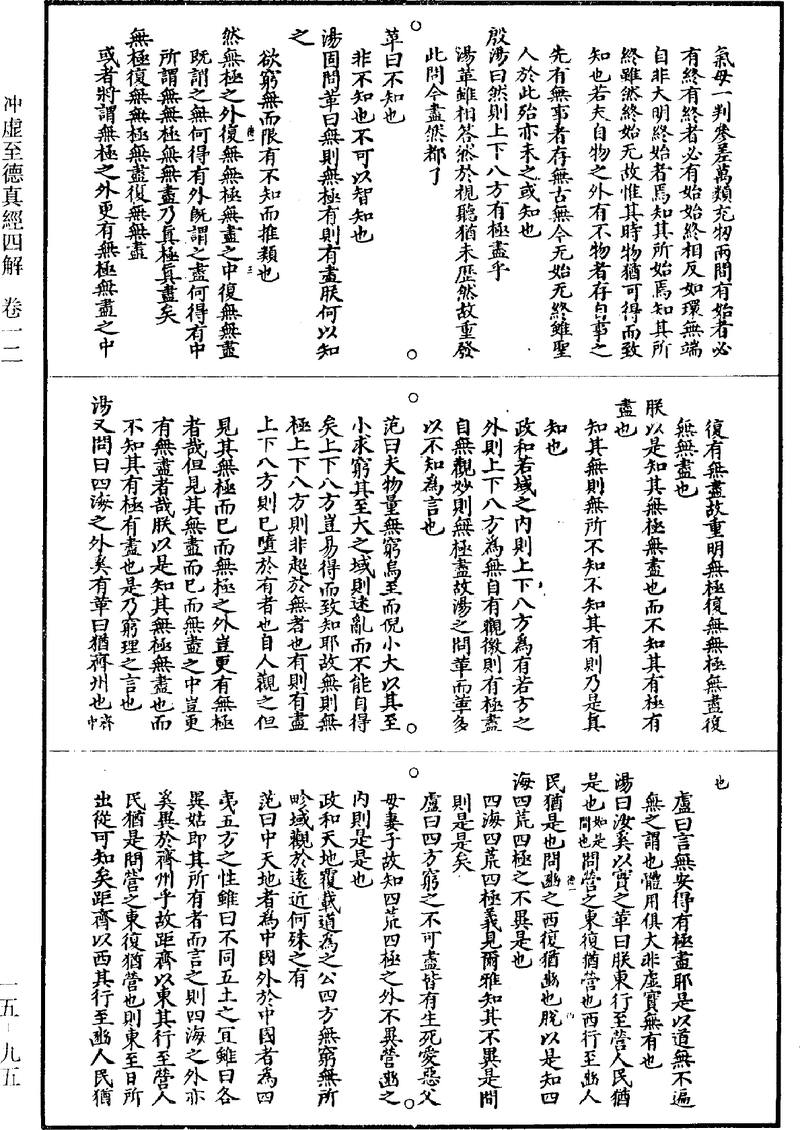 冲虛至德真經四解　卷一二
一五-九五
氣母一判參差萬類充物兩間有始者必
有終有終者必有始始終相反如環無端
自非大明終始者焉知其所始焉知其所
終雖然終始无故惟其時物猶可得而致
知也若夫自物之外有不物者存自事之
先有無事者存無古無今无始无終雖聖
人於此殆亦未之或知也
殷湯曰然則上下八方有極盡乎
湯革雖相答然於視聽猶未歷然故重發
此問令盡然都了
革曰不知也
非不知也不可以智知也
湯固問革曰無則無極有則有盡朕何以知
之
欲窮無而限有不知而推類也
然無極之外復無無極無盡之中復無無盡
既謂之無何得有外既謂之盡何得有中
所謂無無極無無盡乃真極真盡矣
無極復無無極無盡復無無盡
或者將謂無極之外更有無極無盡之中
復有無盡故重明無極復無無極無盡復
無無盡也
朕以是知其無極無盡也而不知其有極有
盡也
知其無則無所不知不知其有則乃是真
知也
政和若域之內則上下八方為有若方之
外則上下八方為無自有觀徼則有極盡
自無觀妙則無極盡故湯之問革而革多
以不知為言也
范曰夫物量無窮烏至而倪小大以其至
小求窮其至大之域則迷亂而不能自得
矣上下八方豈易得而致知耶故無則無
極上下八方則非超於無者也有則有盡
上下八方則已墮於有者也自人觀之但
見其無極而已而無極之外豈更有無極
者哉但見其無盡而已而無盡之中豈更
有無盡者哉朕以是知其無極無盡也而
不知其有極有盡也是乃窮理之言也
湯又問曰四海之外奚有革曰猶齊州也齊中
也
盧曰言無安得有極盡耶是以道無不遍
無之謂也體用俱大非虛實無有也
湯曰汝奚以實之革曰朕東行至營人民猶
是也如是間也問營之東復猶營也西行至豳人
民猶是也問豳之西復猶豳也朕以是知四
海四荒四極之不異是也
四海四荒四極義見爾雅知其不異是間
則是是矣
盧曰四方窮之不可盡皆有生死愛惡父
母妻子故知四荒四極之外不異營豳之
內則是是也
政和天地覆載道為之公四方無窮無所
畛域觀於遠近何殊之有
范曰中天地者為中國外於中國者為四
夷五方之性雖曰不同五土之宜雖曰各
異姑即其所有者而言之則四海之外亦
奚異於齊州乎故距齊以東其行至營人
民猶是問營之東復猶營也則東至日所
出從可知矣距齊以西其行至豳人民猶